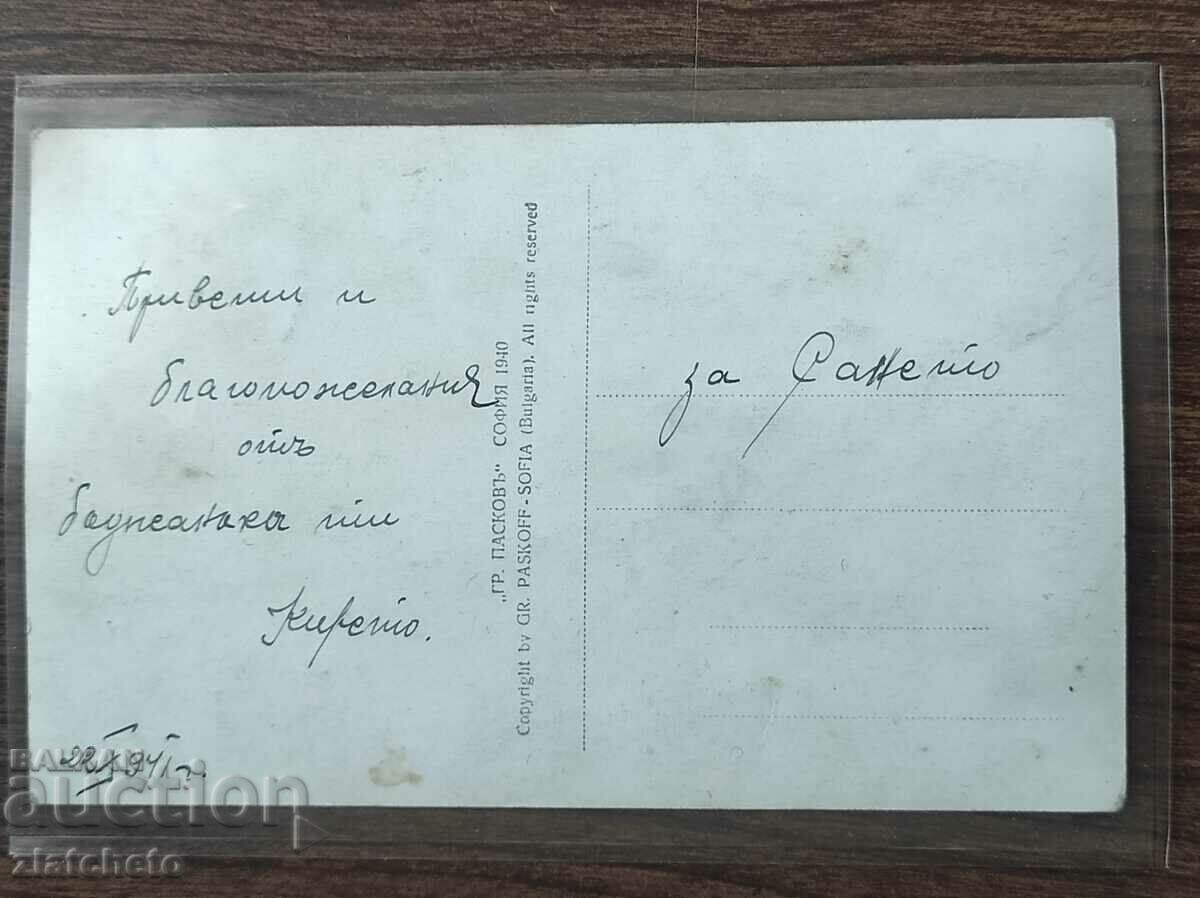 Привети и
благопожелания
отъ
баджанака ти
Кирето.
22/I 941 г.
„ГР. ПАСКОВЪ“ СОФИЯ 1940
Copyright by GR. PASKOFF - SOFIA (Bulgaria). All rights reserved
за Сането
BALKAN
auction
zlatcheto